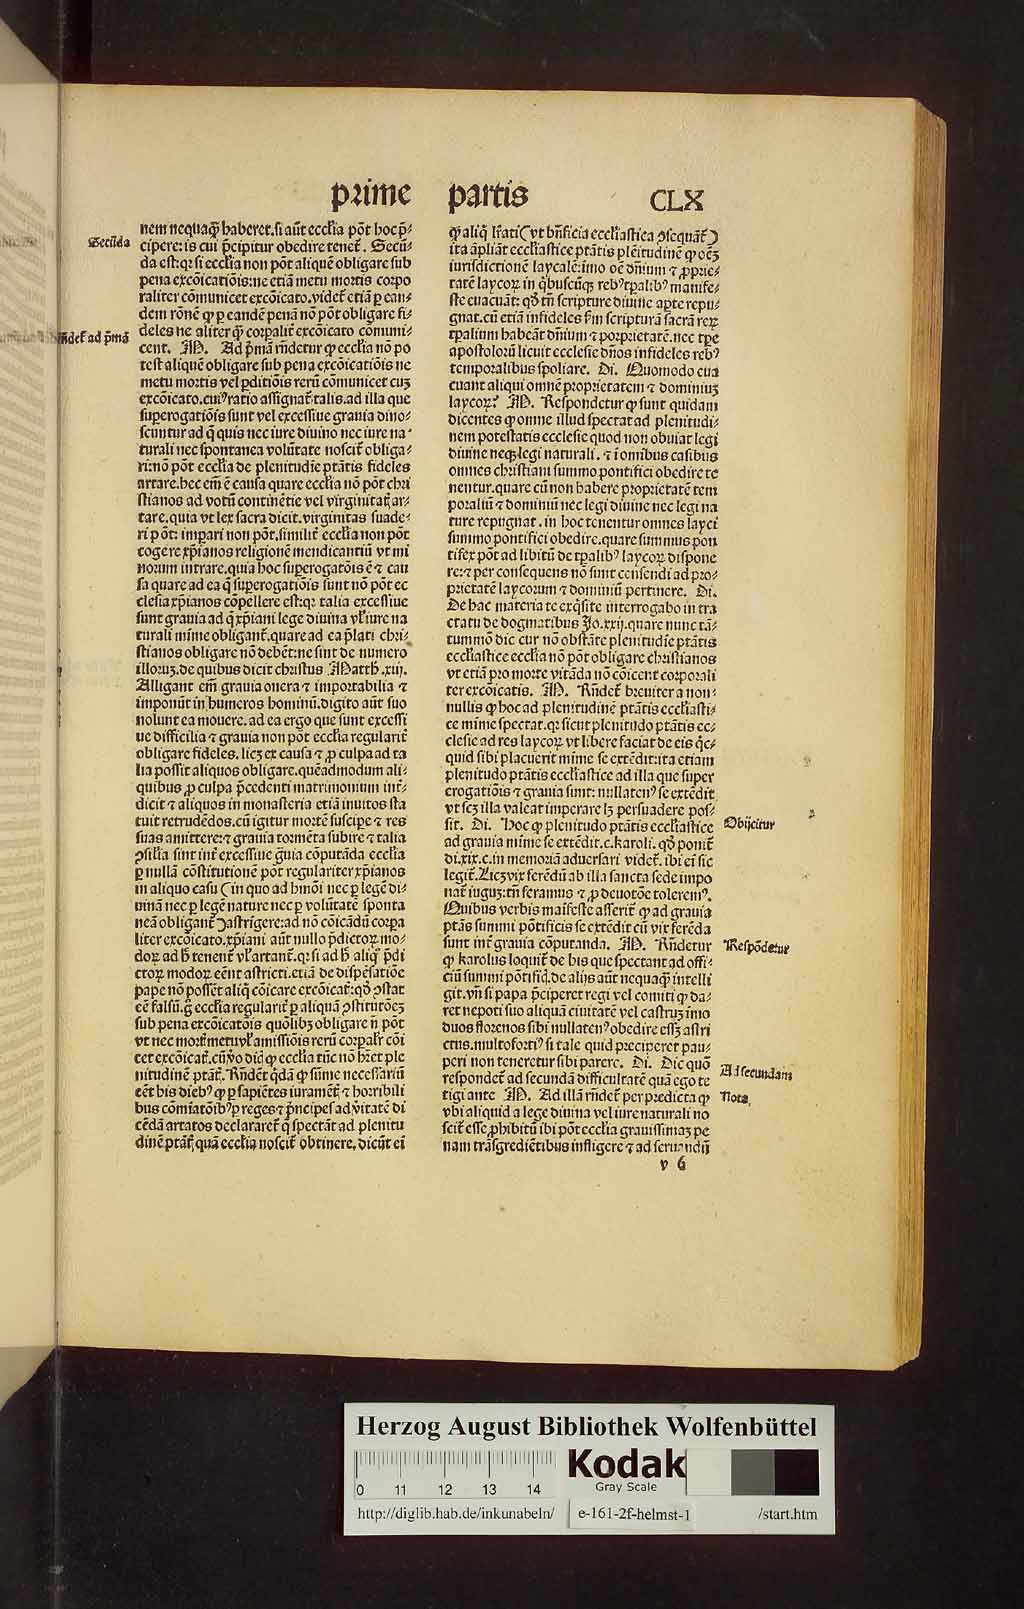 prime partis CLX
nem nequaqȝ haberet. si aūt eccl̄ia pōt hoc p̄-
cipere: is cui p̄cipitur obedire tenet̄. Secū-
da est: qꝛ si ecclia non pōt aliquē obligare sub
pena excōicatiōis: ne etiā metu mortis corpo
raliter cōmunicet excōicato. videt̄ etiā ꝑ ean-
dem rōnē ꝙ ꝑ eandē penā nō pōt obligare fi-
deles ne aliter qȝ corpalit̄ excōicato cōmuni-
cent. M. Ad p̄mā rn̄detur ꝙ ecclia nō po
test aliquē obligare sub pena excōicatiōis ne
metu mortis vel ꝑditiōis rerū cōmunicet cuȝ
excōicato. cuiꝰ ratio assignat̄ talis. ad illa que
superogatiōis sunt vel excessiue grauia dino-
scuntur ad q̄ quis nec iure diuino nec iure na-
turali nec spontanea volūtate noscit̄ obliga-
ri: nō pōt ecclia de plenitudīe ptātis fideles
artare. hec em̄ ē causa quare ecclia nō pōt chri
stianos ad votū continētie vel virginitat̄ ar-
tare. quia vt lex sacra dicit. virginitas suade-
ri pōt: impari non pōt. similit̄ ecclia non pōt
cogere xp̄ianos religionē mendicantiū vt mi
norum intrare. quia hoc superogatōis ē ⁊ cau
sa quare ad ea q̄ superogatiōis sunt nō pōt ec
clesia xp̄ianos cōpellere est: qꝛ talia excessiue
sunt grauia ad q̄ xp̄iani lege diuina vl̓ iure na
turali mīme obligant̄. quare ad ea p̄lati chri-
stianos obligare nō debēt: ne sint de numero
illoruȝ. de quibus dicit christus Matth̓. xxiij.
Alligant em̄ grauia onera ⁊ importabilia ⁊
imponūt in humeros hominū. digito aūt suo
nolunt ea mouere. ad ea ergo que sunt excessi
ue difficilia ⁊ grauia non pōt ecclia regularit̄
obligare fideles. licȝ ex causa ⁊ ꝓ culpa ad ta
lia possit aliquos obligare. quēadmodum ali-
quibus ꝓ culpa p̄cedenti matrimonium int̄-
dicit ⁊ aliquos in monasteria etiā inuitos sta
tuit retrudēdos. cū igitur mortē suscipe ⁊ res
suas amittere: ⁊ grauia tormēta subire ⁊ talia
ꝯsilia sint int̄ excessiue ḡuia cōputāda ecclia
ꝑ nullā cōstitutionē pōt regulariter xp̄ianos
in aliquo casu (in quo ad hmōi nec ꝑ legē di-
uinā nec ꝑ legē nature nec ꝑ volūtatē sponta
neā obligant̄) astrīgere: ad nō cōicādū corpa
liter excōicato. xp̄iani aūt nullo p̄dictoꝝ mo-
doꝝ ad h̓ tenent̄ vl̓ artant̄. qꝛ si ad h̓ aliq̊ p̄di
ctoꝝ modoꝝ eēnt astricti. etiā de dispēsatiōe
pape nō possēt aliq̊ cōicare excōicat̄: qd̓ ꝯstat
eē falsū. g̊ ecclia regularit̄ ꝑ aliquā ꝯstitutōeȝ
sub pena excōicatōis quōlibȝ obligare n̄ pōt
vt nec mort̄ metu vl̓ amissiōis rerū corpalr̄ cōi
cet excōicat̄. cū v̊o diq̊ ꝙ ecclia tūc nō hēt ple
nitudinē ptāt̄. Rn̄det̄ q̄dā ꝙ sūme necessariū
eēt his diebꝰ ꝙ ꝑ sapiētes iuramēt̄ ⁊ horribili
bus cōmiatōibꝰ ꝑ reges ⁊ p̄ncipes ad v̓itatē di
cēdā artatos declararet̄ q̄ spectāt ad plenitu
dinē ptāt̄ quā ecclia noscit̄ obtinere, dicūt eī
ꝙ aliq̊ lr̄ati (vt bn̄ficia eccl̓iastica ꝯsequāt̄)
ita āpliāt eccl̓iastice ptātis plēitudinē ꝙ oēȝ
iurisdictionē laycalē: imo oē dn̄ium ⁊ ꝓprie-
tatē laycoꝝ in q̄buscūqȝ rebꝰ tp̄alibꝰ manife-
ste euacuāt: qd̓ tn̄ scripture diuine apte repu-
gnat. cū etiā infideles s̄m scripturā sacrā reꝝ
tp̄alium habeāt dn̄ium ⁊ porprietatē. nec tp̄e
apostoloꝝ licuit ecclesie dn̄os infideles rebꝰ
temporalibus spoliare. Di. Quomodo eua
cuant aliqui omnē proprietatem ⁊ dominiuȝ
laycoꝝ? M. Respondetur ꝙ sunt quidam
dicentes ꝙ omne illud spectat ad plenitudi-
nem potestatis ecclesie quod non obuiat legi
diuine neqȝ legi naturali. ⁊ ī omībus casibus
omnes christiani summo pontifici obedire te
nentur. quare cū non habere proprietatē tem
poraliū ⁊ dominiū nec legi diuine nec legi na
ture repugnat. in hoc tenentur omnes layci
summo pontifici obedire. quare summus pon
tifex pōt ad libitū de tp̄alibꝰ laycoꝝ dispone
re: ⁊ per consequens nō sunt censendi ad pro-
prietatē laycorum ⁊ dominiū pertinere. Di.
De hac materia te exq̄site interrogabo in tra
ctatu de dogmatibus Jo. xxij. quare nunc tā-
tummō dic cur nō obstāte plenitudīe ptātis
eccl̓iastice ecclia nō pōt obligare christianos
vt etiā pro morte vitāda nō cōicent corporali
ter excōicatis. M. Rn̄det̄ breuiter a non-
nullis ꝙ hoc ad plenitudinē ptātis eccl̓iasti-
ce mīme spectat. qꝛ sicut plenitudo ptātis ec-
clesie ad res laycoꝝ vt libere faciat de eis q̄c-
quid sibi placuerit mīme se extēdit: ita etiam
plenitudo ptātis eccl̓iastice ad illa que super
erogatiōis ⁊ grauia sunt: nullatenꝰ se extēdit
vt scȝ illa valeat imperare lȝ persuadere pos-
sit. Di. Hoc ꝙ plenitudo ptātis eccl̓iastice
ad grauia mīme se extēdit. c. karoli. qd̓ ponit̄
di. xix. c. in memoriā aduersari videt̄. ibi ei̓ sic
legit̄. Licȝ vix ferēdū ab illa sancta sede impo
nat̄ iuguȝ: tn̄ feramus ⁊ ꝓ deuotōe toleremꝰ.
Quibus verbis maīfeste asserit̄ ꝙ ad grauia
ptās summi pōtificis se extēdit cū vix ferēda
sunt int̄ grauia cōputanda. M. Rn̄detur
ꝙ karolus loquit̄ de his que spectant ad offi-
ciū summi pōtific̄. de alijs aūt nequaqȝ intelli
git. vn̄ si papa p̄ciperet regi vel comiti ꝙ da-
ret nepoti suo aliquā ciuitatē vel castruȝ imo
duos florenos sibi nullatenꝰ obedire esset astri
ctus. multofortiꝰ si tale quid preciperet pau-
peri non teneretur sibi parere. Di. Dic quō
respondet̄ ad secundā difficultatē quā ego te
tigi ante M. Ad illā rn̄det̄ per predicta ꝙ
vbi aliquid a lege diuina vel iure naturali no
scit̄ esse ꝓhibitū ibi pōt ecclia grauissimaȝ pe
nam trāsgrediētibus infligere ⁊ ad seruandū
v 6
Secūda
Rn̄det̄ ad p̄mā
Obijcitur
Respōdetur
Ad secundam
Nota
Herzog August Bibliothek Wolfenbüttel
0 11 12 13 14
Kodak
Gray Scale
http://diglib.hab.de/inkunabeln/ e-161-2f-helmst-1 /start.htm